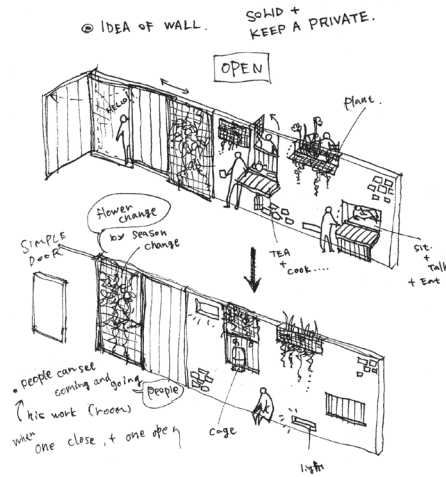 ◎ IDEA OF WALL.
SOLID +
KEEP A PRIVATE.
OPEN
HELLO!
Plant.
TEA
+
COOK....
Sit.
+
Talk
+ Eat
flower
change
by season
change
SIMPLE
DOOR
• people can see
coming and going
people
his work (room)
when
one close, + one open
cage
light